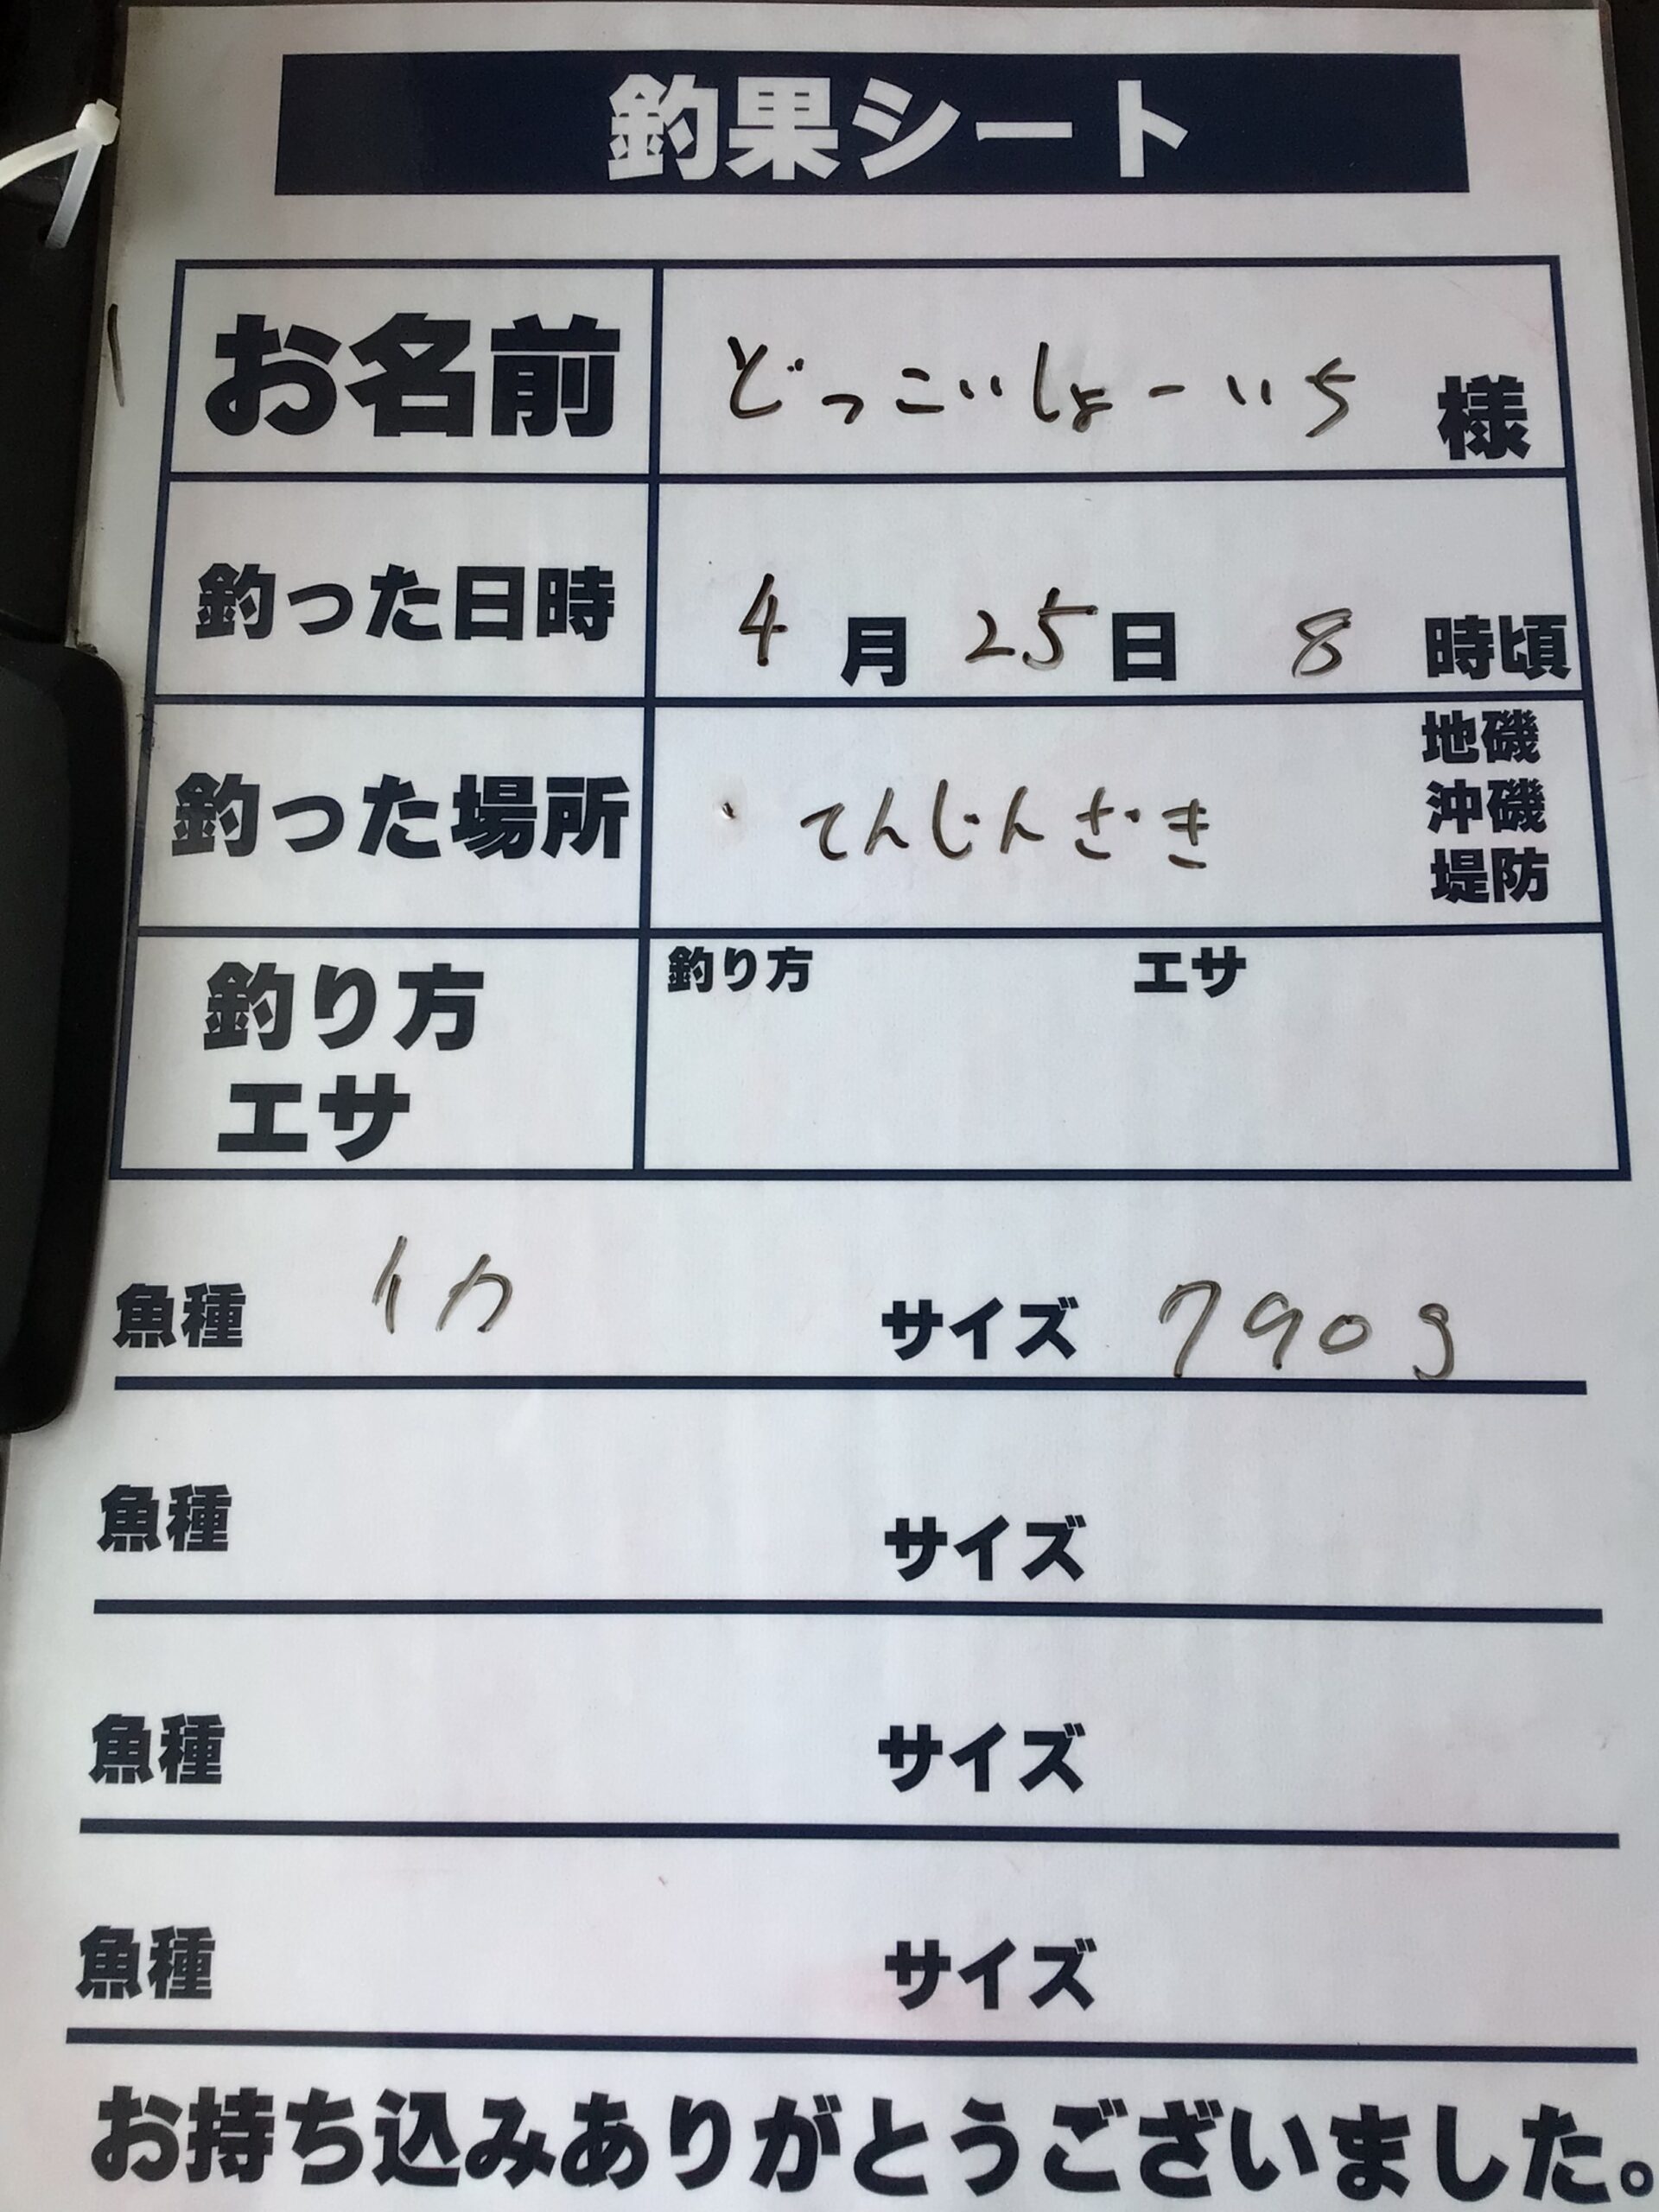 釣果シート
お名前 どっこいしょーいち 様
釣った日時 4月25日 8時頃
釣った場所 てんじんざき 地磯
沖磯
堤防
釣り方 エサ
釣り方
エサ
魚種 イカ サイズ 790g
魚種 サイズ
魚種 サイズ
魚種 サイズ
お持ち込みありがとうございました。